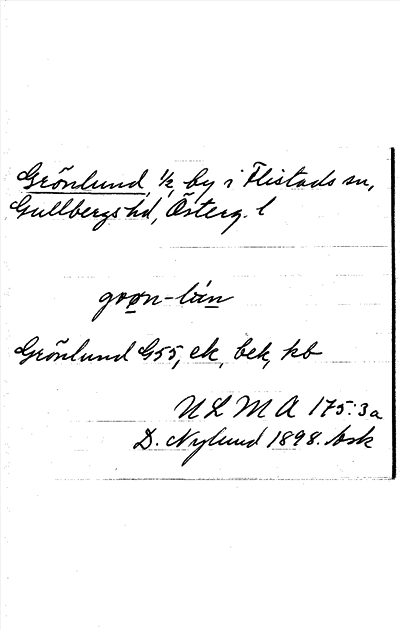 Grönlund, 1/2, by i Flistads sn,
Gullbergs hd, Österg. l
Grönlund G55, ek, bek, kb
ULMA 175:3a
D. Nylund 1898.